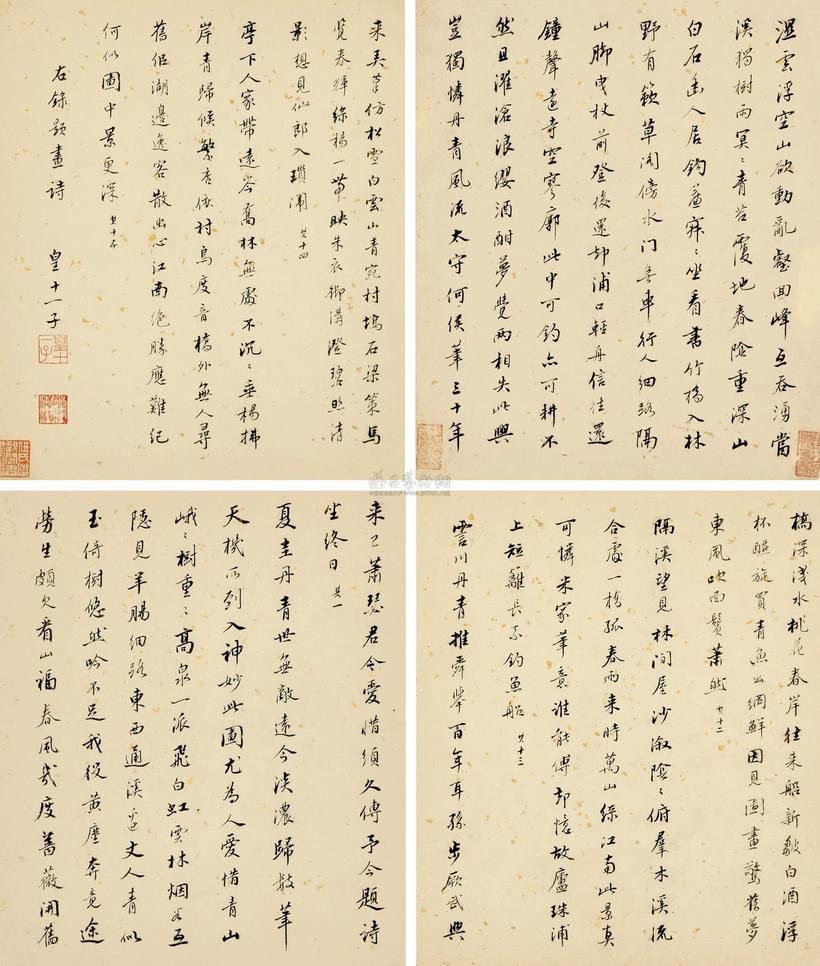 溼雲浮空山欲動亂壑回峰互吞湧當
溪獨樹雨冥〻青苔覆地春陰重深山
白石幽人居鈎簾寂〻坐看書竹橋入林
野有簌草閣傍水門無車行人細路隔
山脚曳杖前登後還却浦口輕舟信往還
鐘聲遠寺空寥廓此中可釣亦可耕不
然且濯滄浪纓酒酣夢覺兩相失此興
豈獨憐丹青風流太守何侯筆三十年
來已蕭瑟君今愛惜須久傳予今題詩
坐終日 其一
夏圭丹青世無敵遠今淡濃歸數筆
天機所到入神妙此圖尤為人愛惜青山
峨〻樹重〻高泉一派飛白虹雲林烟谷互
隱見羊腸細路東西通溪邊丈人青似
玉倚樹悠然吟不足我役黃塵奔竟途
勞生頗欠看山福春風幾度薔薇開舊
橋深淺水桃花春岸往來船新白酒浮
杯旋買青魚出網鮮因見圖畫驚舊夢
東風吹面鬢蕭然 其十二
隔溪望見林間屋沙溆陰〻俯羣木溪流
合處一橋孤春雨來時萬山綠江南此景真
可憐米家筆意誰能傳却憶故廬珠浦
上短籬長系釣魚船 其十三
雲川丹青推舜舉百年耳孫步厥武興
來美筆仿松雪白雲山青宛村塢石梁策馬
覽春輝綠楊一帶映朱衣御溝澄碧照清
影想見仙郎入瑣闈 其十四
亭下人家帶遠岑喬林無處不沉〻垂楊拂
岸青歸候繁杏依村鳥度音橋外無人尋
舊侶湖邊逸客散幽心江南絕勝應難紀
何似圖中景更深 其十五
右錄題畫詩
皇十一子